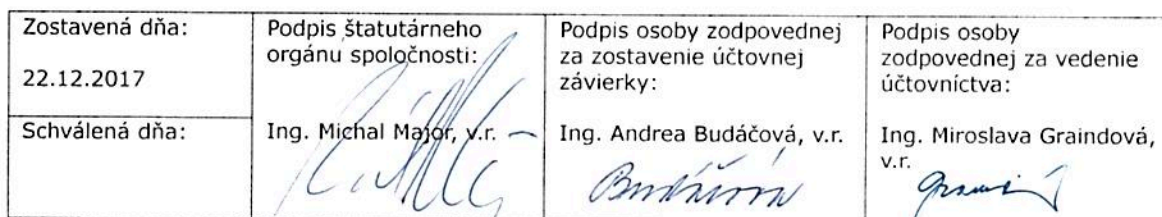 Zostavená dňa:
22.12.2017
Schválená dňa:
Podpis štatutárneho
orgánu spoločnosti:
Ing. Michal Major, v.r.
Podpis osoby zodpovednej
za zostavenie účtovnej
závierky:
Ing. Andrea Budáčová, v.r.
Budáčová
Podpis osoby
zodpovednej za vedenie
účtovníctva:
Ing. Miroslava Graindová,
v.r.